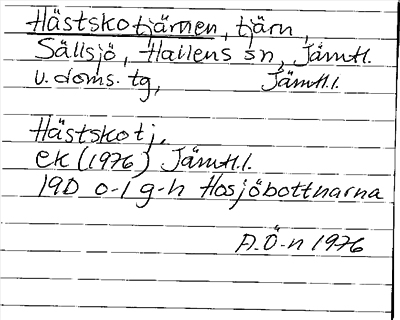 Hästskotjärnen, tjärn,
Sällsjö, Hallens sn, Jämtl.
v. doms. tg, Jämtl.l.
Hästskotj.
ek (1976) Jämtl.l.
19D 0-1 g-h Hosjöbottnarna
A.Ö-n 1976